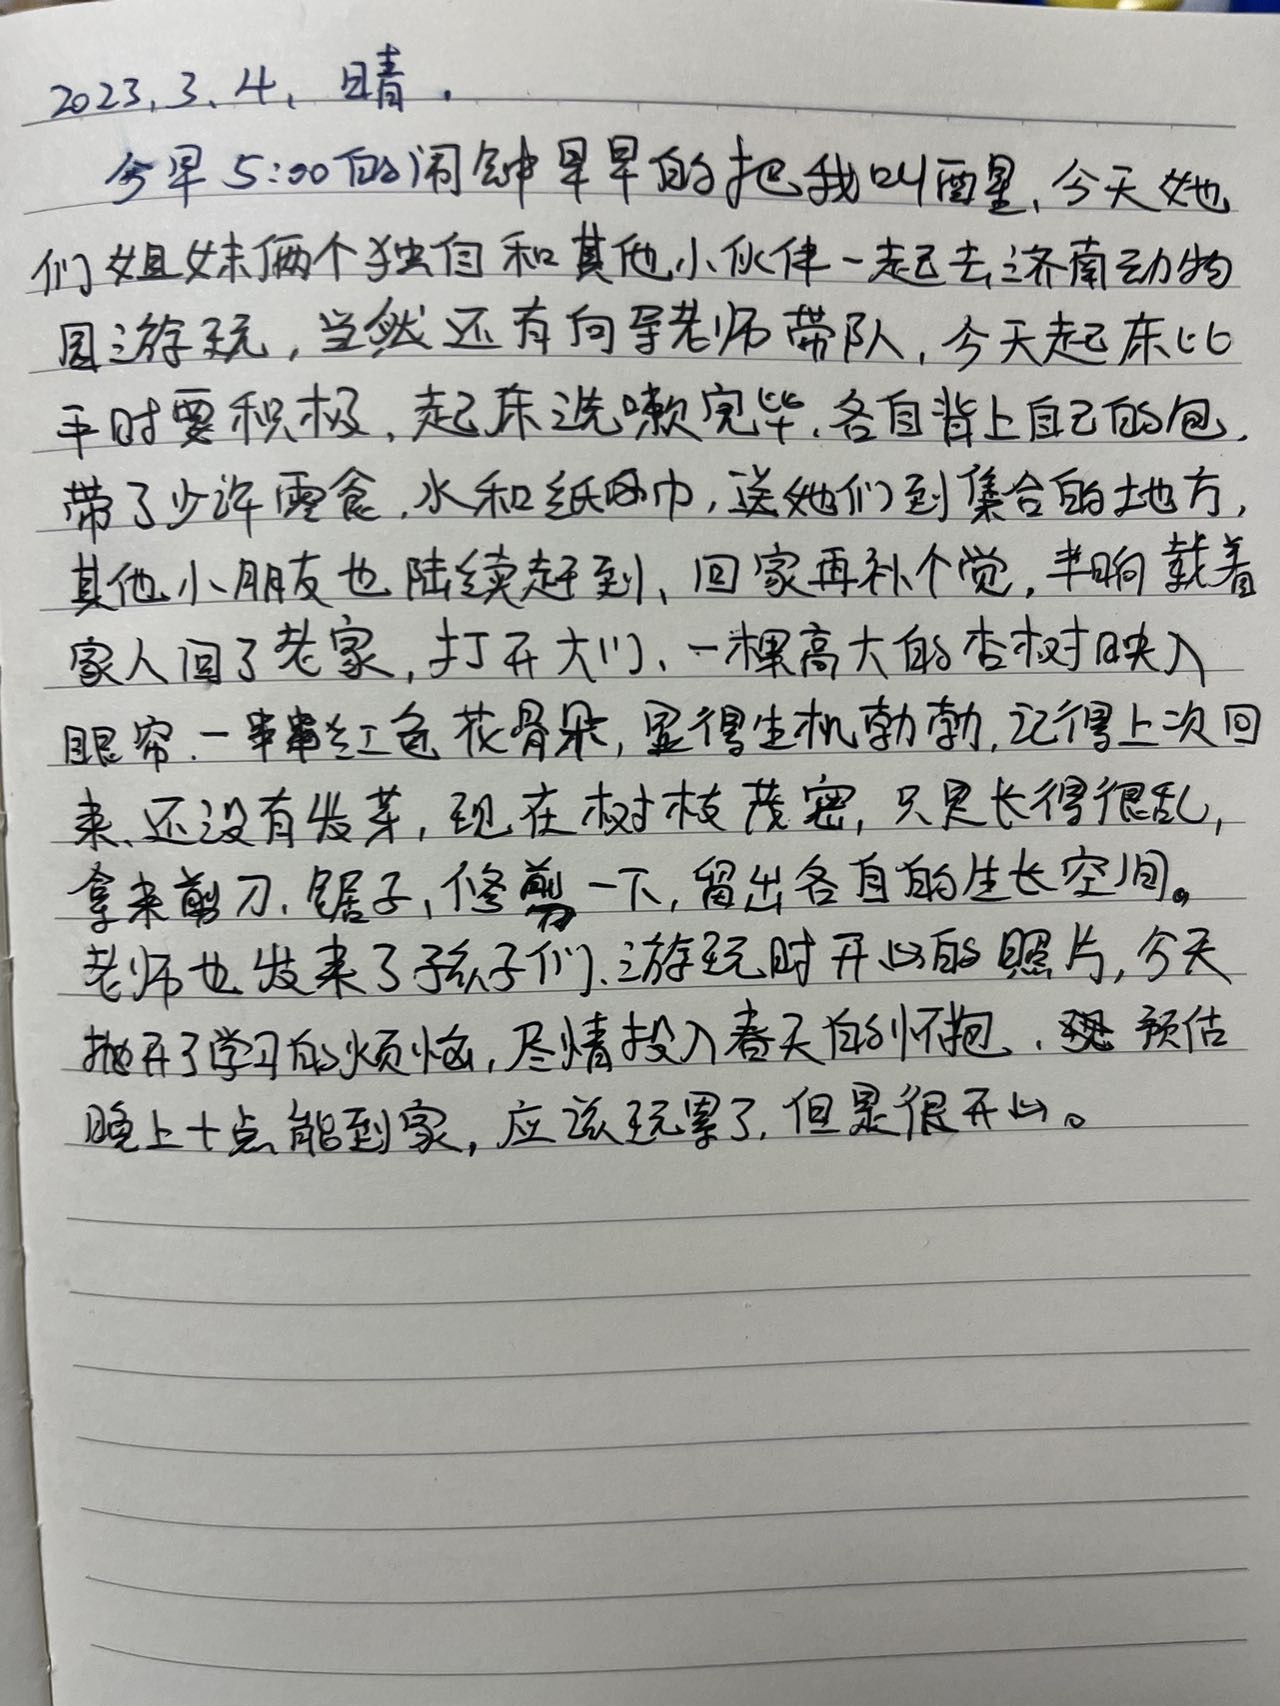 2023.3.4、晴.
今早5:00的闹钟早早的把我叫醒、今天她
们姐妹俩个独自和其他小伙伴一起去济南动物
园游玩，当然还有向导老师带队，今天起床比
平时要积极，起床洗嗽完毕、各自背上自己的包.
带了少许零食.水和纸巾，送她们到集合的地方，
其他小朋友也陆续赶到、回家再补个觉，半晌载着
家人回了老家，打开大门、一棵高大的杏树映入
眼帘.一串串红色花骨朵，显得生机勃勃，记得上次回
来、还没有发芽，现在树枝茂密，只是长得很乱，
拿来剪刀、锯子，修剪一下，留出各自的生长空间。
老师也发来了孩子们、游玩时开心的照片，今天
抛开了学习的烦恼，尽情投入春天的怀抱、预估
晚上十点能到家，应该玩累了，但是很开心。